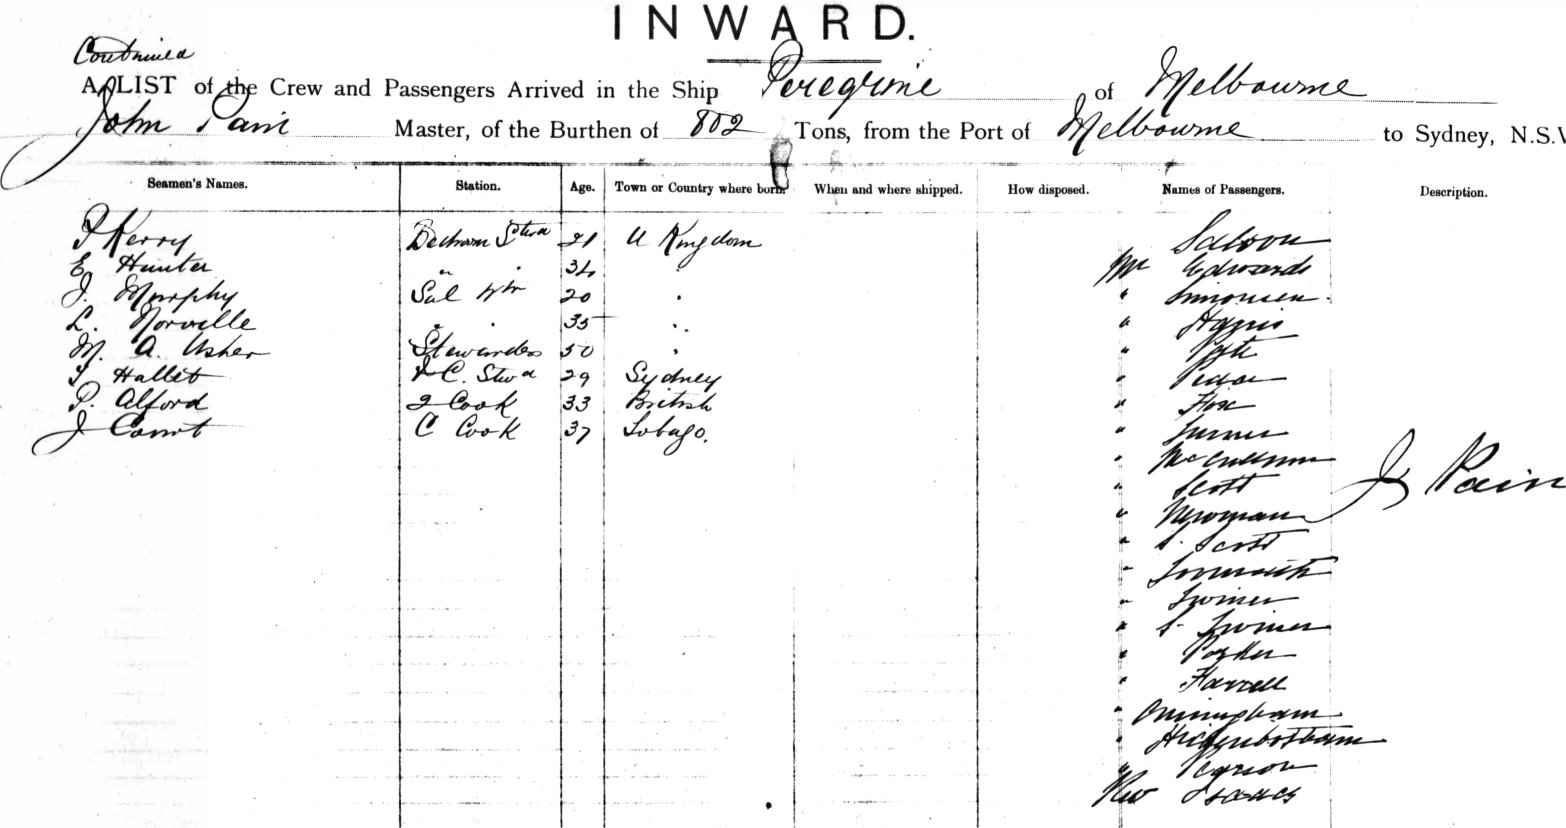 INWARD.
Continued
A LIST of the Crew and Passengers Arrived in the Ship Peregrine of Melbourne
John Pain Master, of the Burthen of 802 Tons, from the Port of Melbourne to Sydney, N.S.W
Seamen's Names. Station. Age. Town or Country where born. When and where shipped. How disposed. Names of Passengers. Description.
Saloon
Kerry Bedroom Stwd 21 U Kingdom
Mr Edwards
E. Hunter " " 34 "
J. Murphy Sal Wtr 20 "
" Simonsen
L. Norville " " 35 "
" Harris
M. A. Usher Stewardess 50 "
"
Hallet C. Stwd 29 Sydney
"
P. Alford 2 Cook 33 British
" Fox
J C Cook 37 Tobago.
" Turner
" McCullum
" Scott
J Pain
" Newman
" S. Scott
"
"
" S.
" Parker
" Farrell
"
" Higginbotham
" Pearson
Rev Isaacs